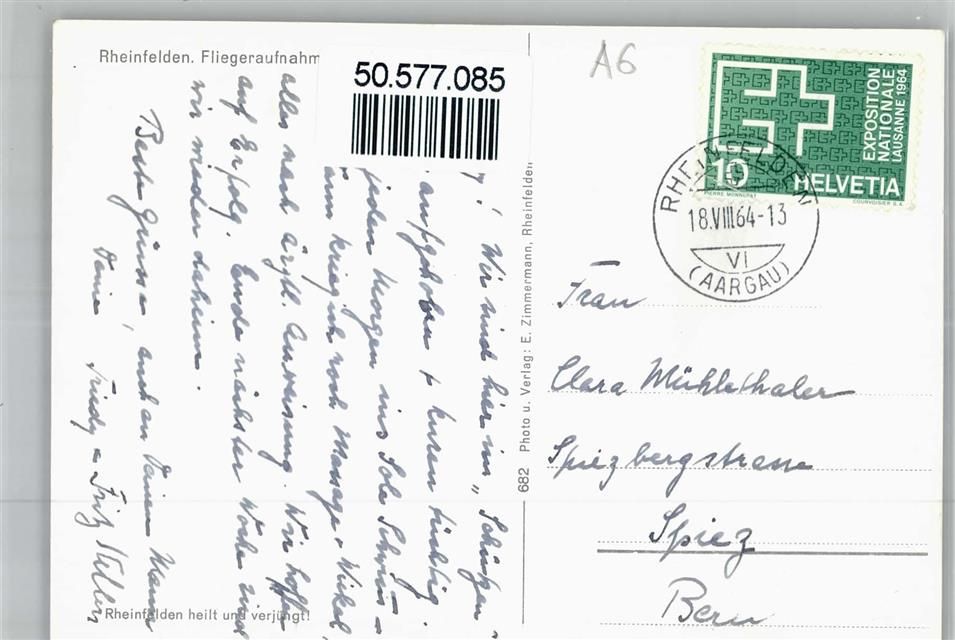 Rheinfelden. Fliegeraufnahm
50.577.085
A6
EXPOSITION
NATIONALE
LAUSANNE 1964
10
HELVETIA
PIERRE MONNERAT
COURVOISIER S.A.
RHEINFELDEN
18.VIII.64-13
VI
(AARGAU)
! Wir sind hier im „Schützen"
aufgehoben + kuren tüchtig.
jeden Morgen ins Sole Schwim-
kriegt noch Massage + Wickel,
alles nach ärztl. Anweisung. Wir hoffen
auf Erfolg. Ende nächster Woche sind
wir wieder daheim.
Beste Grüsse, auch an Deinen Mann
Deine Trudy + Fritz
682 Photo u. Verlag: E. Zimmermann, Rheinfelden
Frau
Clara Mühlethaler
Spiezbergstrasse
Spiez
Bern
Rheinfelden heilt und verjüngt!